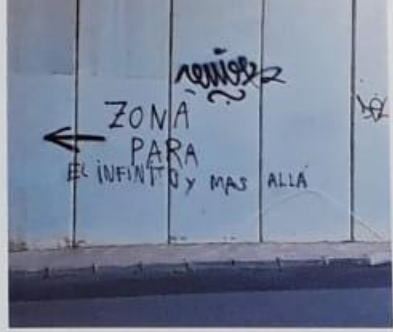 ZONA
PARA
EL INFINITO y MAS ALLÁ